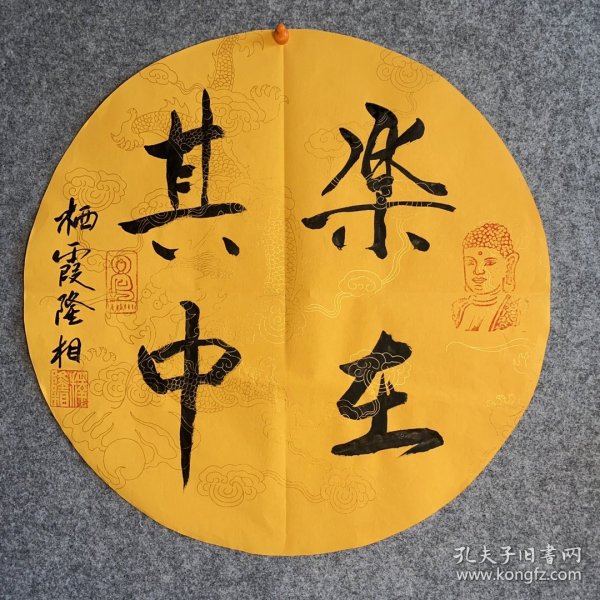 樂在
其中
栖霞隆相
孔夫子旧书网
www.kongfz.com